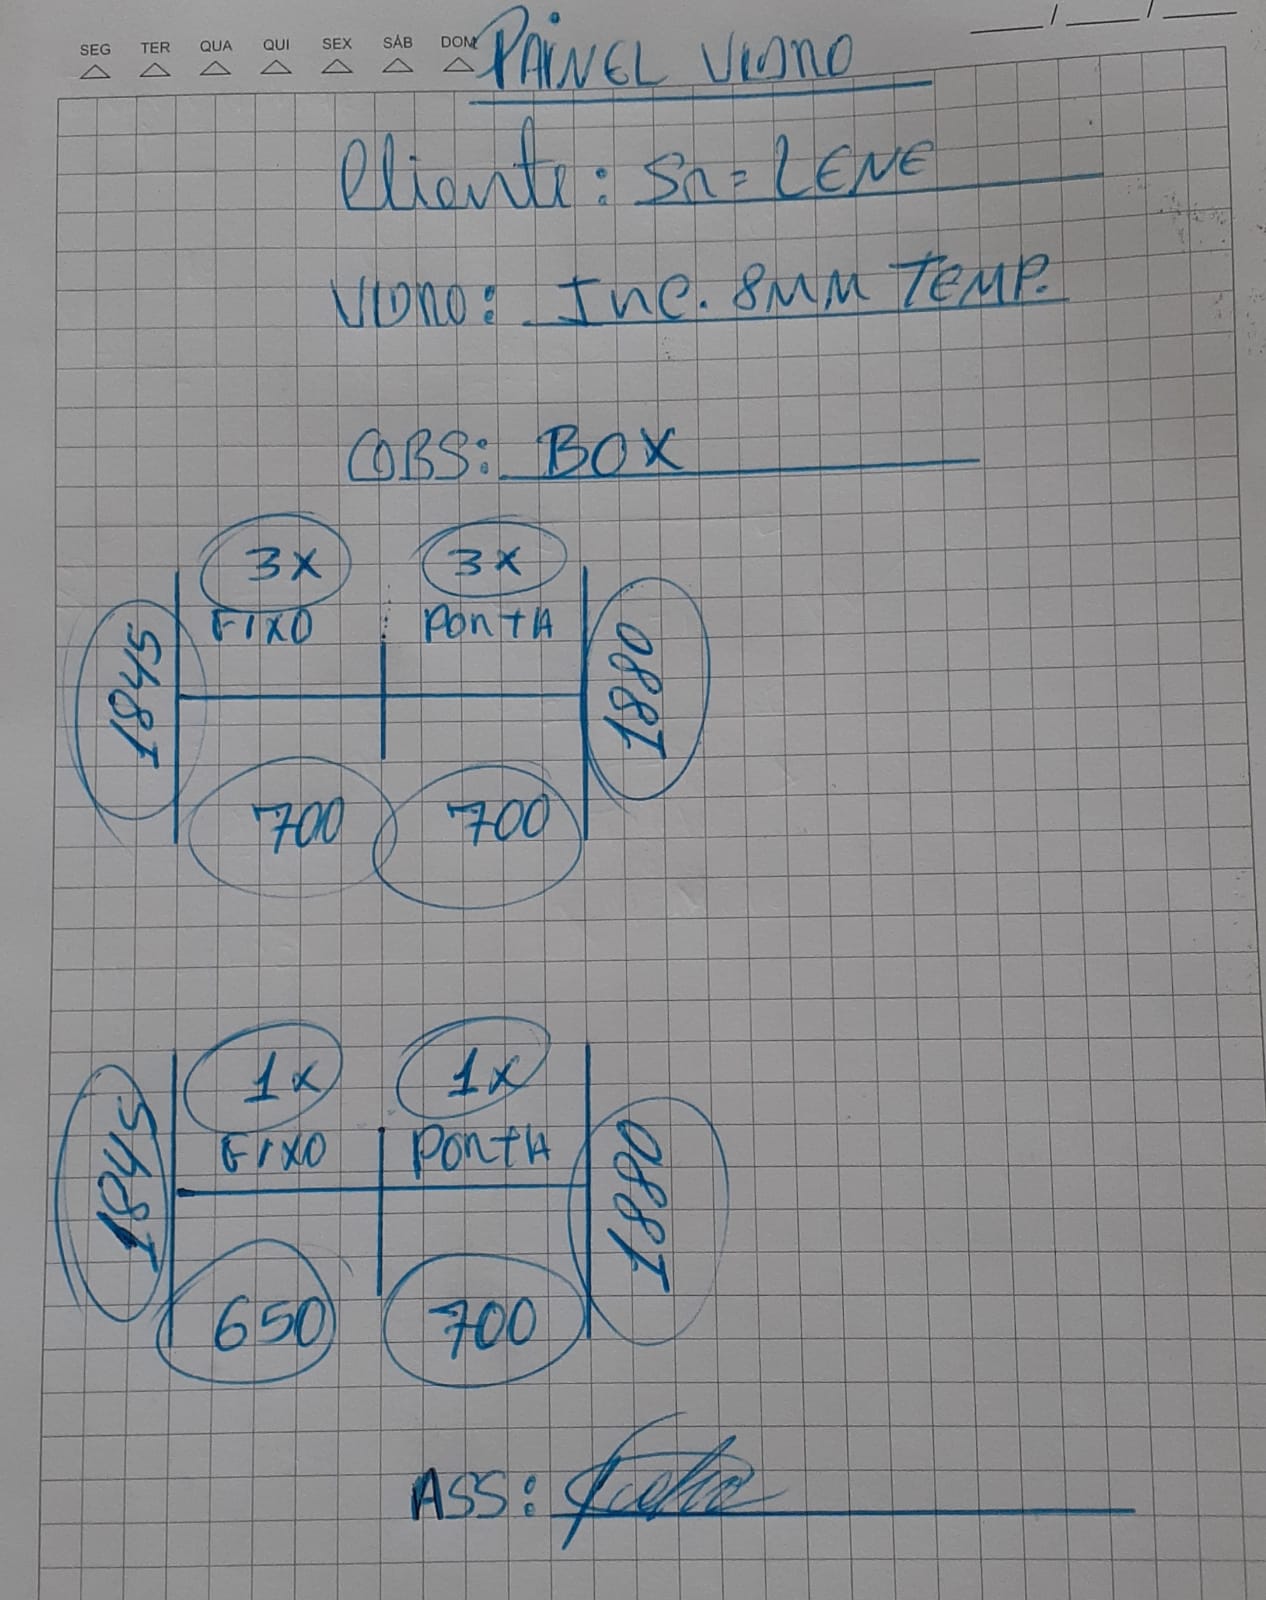 SEG TER QUA QUI SEX SÁB DOM
PAINEL VIDRO
Cliente: Sr= LENE
VIDRO: Inc. 8MM TEMP.
OBS: BOX
3x 3x
FIXO PORTA
1845 1880
700 700
1x 1x
FIXO PORTA
1845 1880
650 700
ASS: